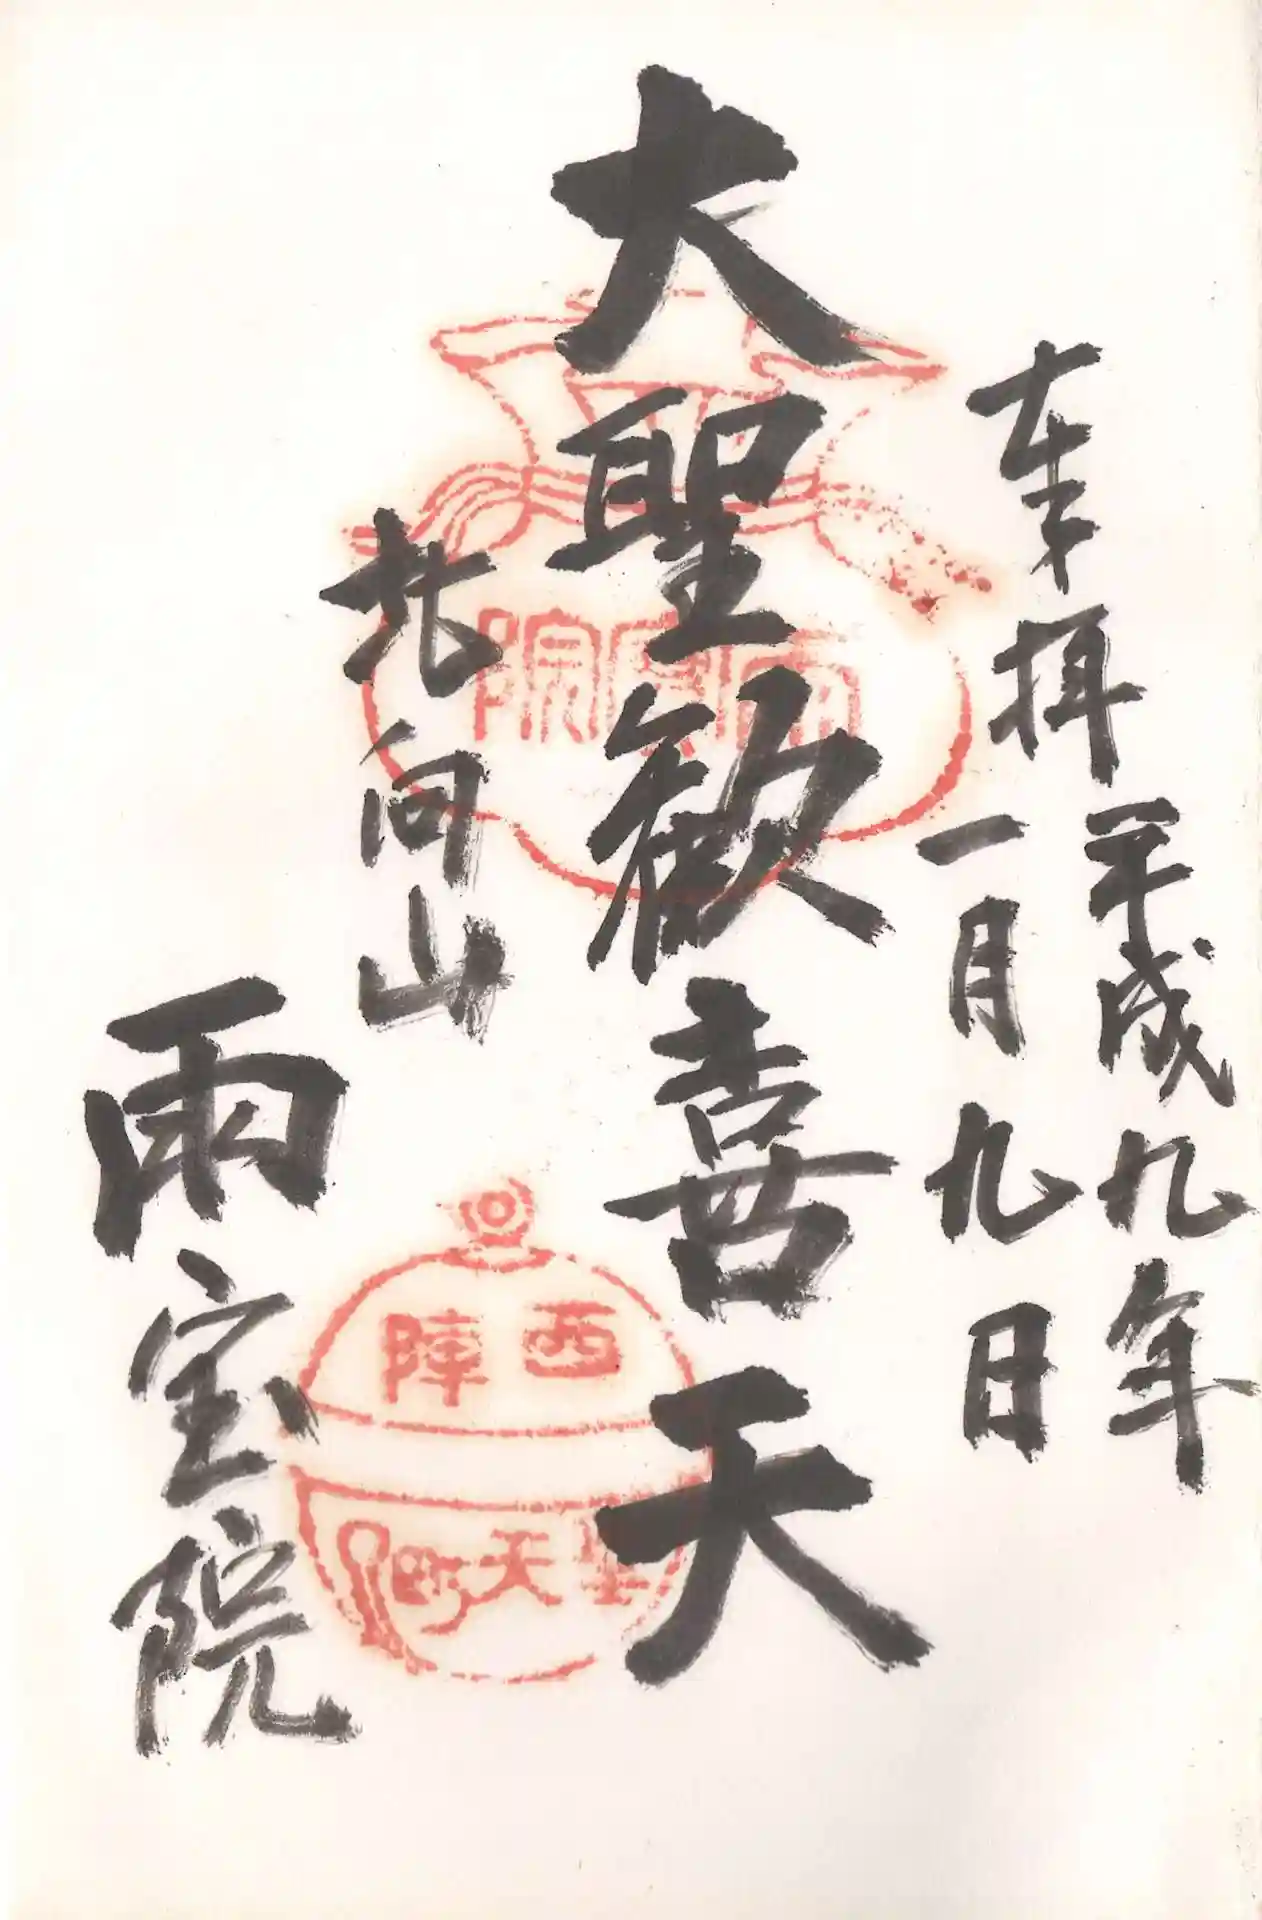 奉拝
平成九年
一月九日
大聖歓喜天
北向山
雨宝院
雨寶院
西陣
聖天